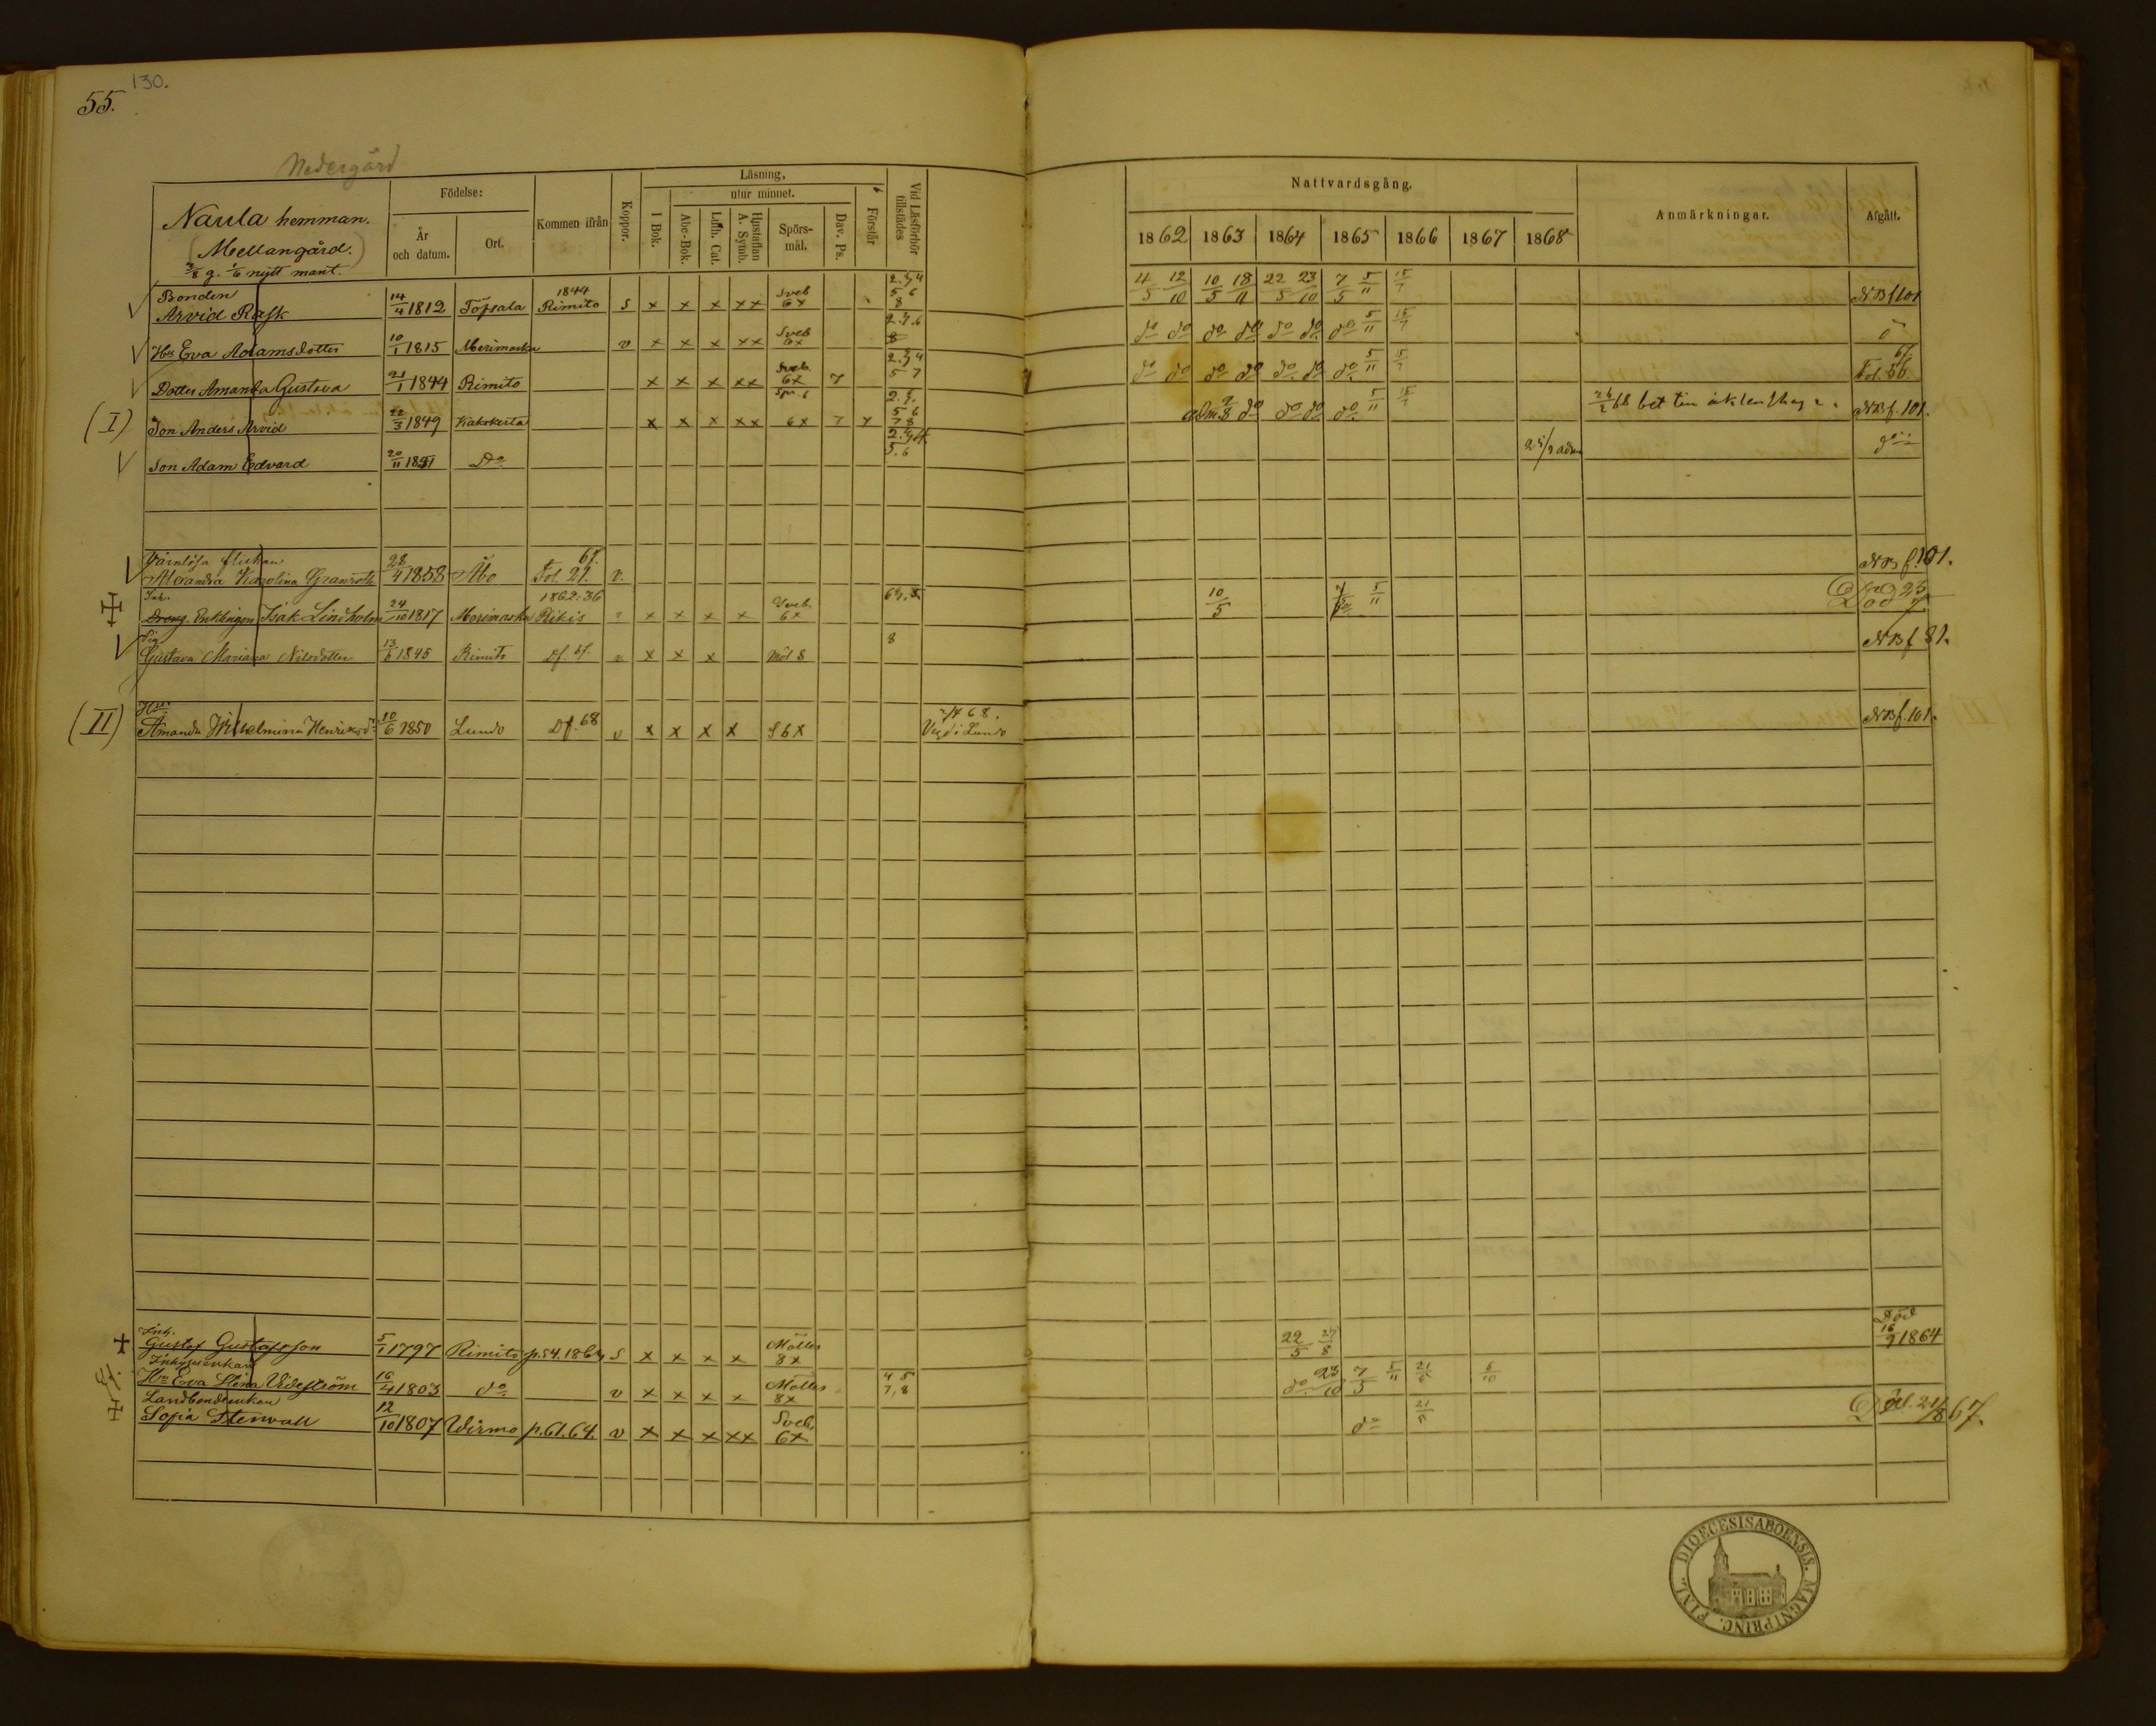 130.
55.
Nedergård
Naula hemman.
(Mellangård.)
3/8 g. 1/6 nytt mant.
Födelse:
År och datum.
Ort.
Kommen ifrån
Koppor.
Läsning,
I Bok.
utur minnet.
Abc-Bok.
Luth. Cat.
Hustaflan A. Symb.
Spörs-mål.
Dav. Ps.
Förstår
Vid Läsförhör tillstädes
Nattvardsgång.
1862 1863 1864 1865 1866 1867 1868
Anmärkningar.
Afgått.
Bonden
Arvid Rask 14/4 1812 Töfsala 1844 Rimito s x x x xx Sveb 6x 2.3,4 5 6 8 4/5 12/10 10/5 18/11 22/5 23/10 7/5 5/11 15/7 NB f 101
Hu Eva Adamsdotter 10/1 1815 Merimasku v x x x xx Sveb 6x do do do do do do do 5/11 15/7
Dotter Amanda Gustava 21/1 1844 Rimito x x x xx Sveb. 6x 7 2.3,4 5 7 do do do do do do do 5/11 15/7 67 Fol. 56.
(I) Son Anders Arvid 22/3 1849 Kakskerta x x x xx 6x 7 x 5 6 7 8 adm. do do do do 5/11 15/7 NB f. 101.
Son Adam Edvard 20/11 1851 Do 5.6
Värnlösa flickan
Alexandra Karolina Granroth 28/4 1858 Åbo 67. Fol. 21. v. NB f. 101.
Inh.
Dreng. Enklingen Isak Lindholm 24/10 1817 Merimasku 1862.36 Rikis x x x x Sveb. 6x 10/5 5/11
Pig
Gustava Mariana Nilsdotter 13/6 1845 Rimito Df. 67. v x x x Möl 8 8 NB f 81.
Hu
(II) Amanda Wilhelmina Henriksdr 10/6 1850 Lundo Df. 68 v x x x x S 6 x Vigd i Lundo NB f. 101.
Inh.
Gustaf Gustafsson 5/1 1797 Rimito p.54.1864 s x x x x Möller 8x 22/5 27/8 Död 16/9 1864
Inhysesenkan
Hu Eva Stina Videström 16/4 1803 do v x x x x Möller 8x 4 5 7,8 do 23/10 7/5 5/11 6/10
Landbondeenkan
Sofia Stenvall 12/10 1807 Wirmo p.61.64. v x x x xx Sveb. 6x do Död. 21/8 67.
FINL. DIOECESIS ABOENSIS. MAGNI PRINC.